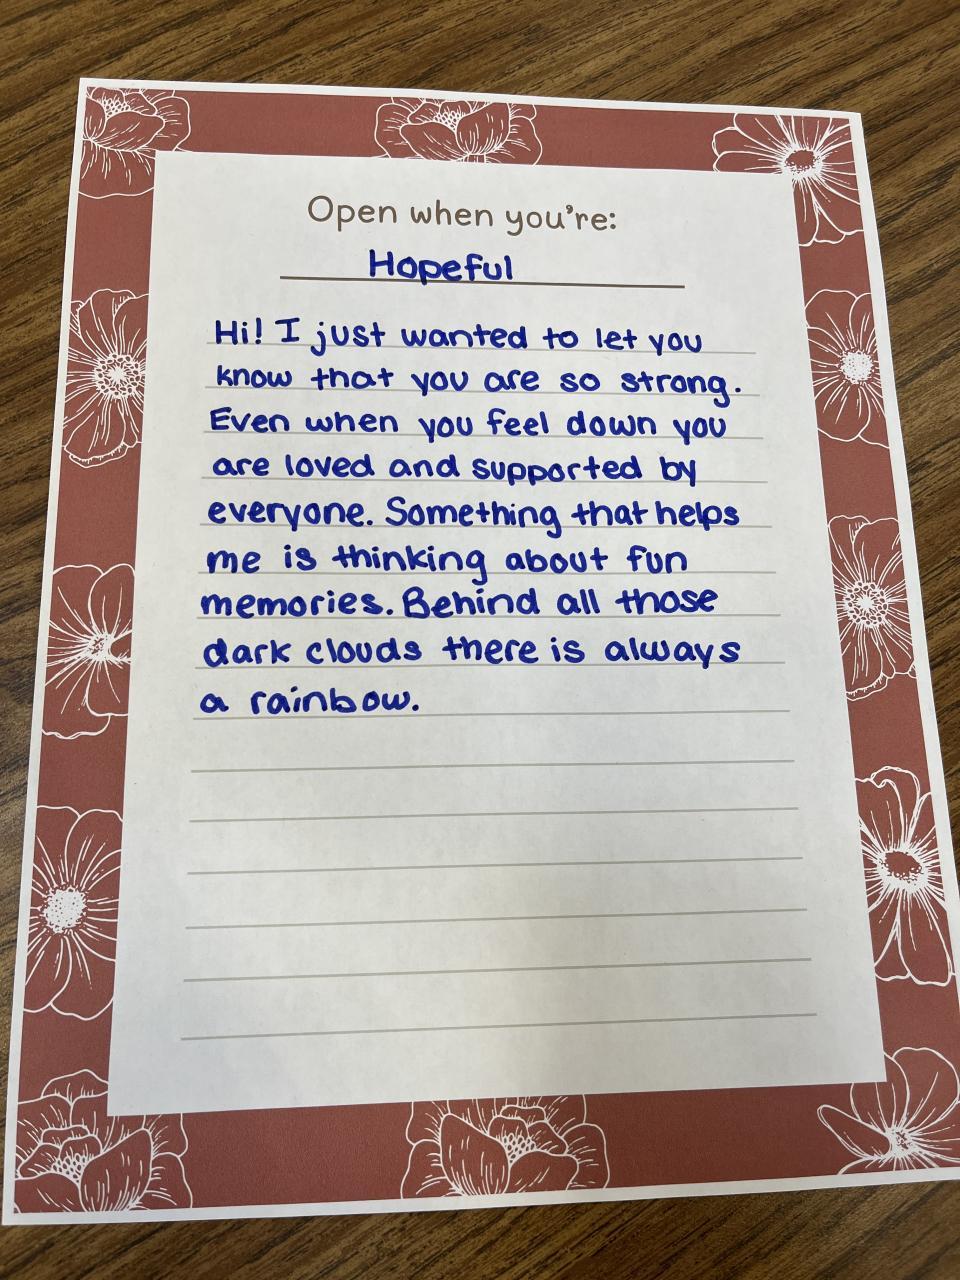 Open when you're:
Hopeful
Hi! I just wanted to let you
know that you are so strong.
Even when you feel down you
are loved and supported by
everyone. Something that helps
me is thinking about fun
memories. Behind all those
dark clouds there is always
a rainbow.